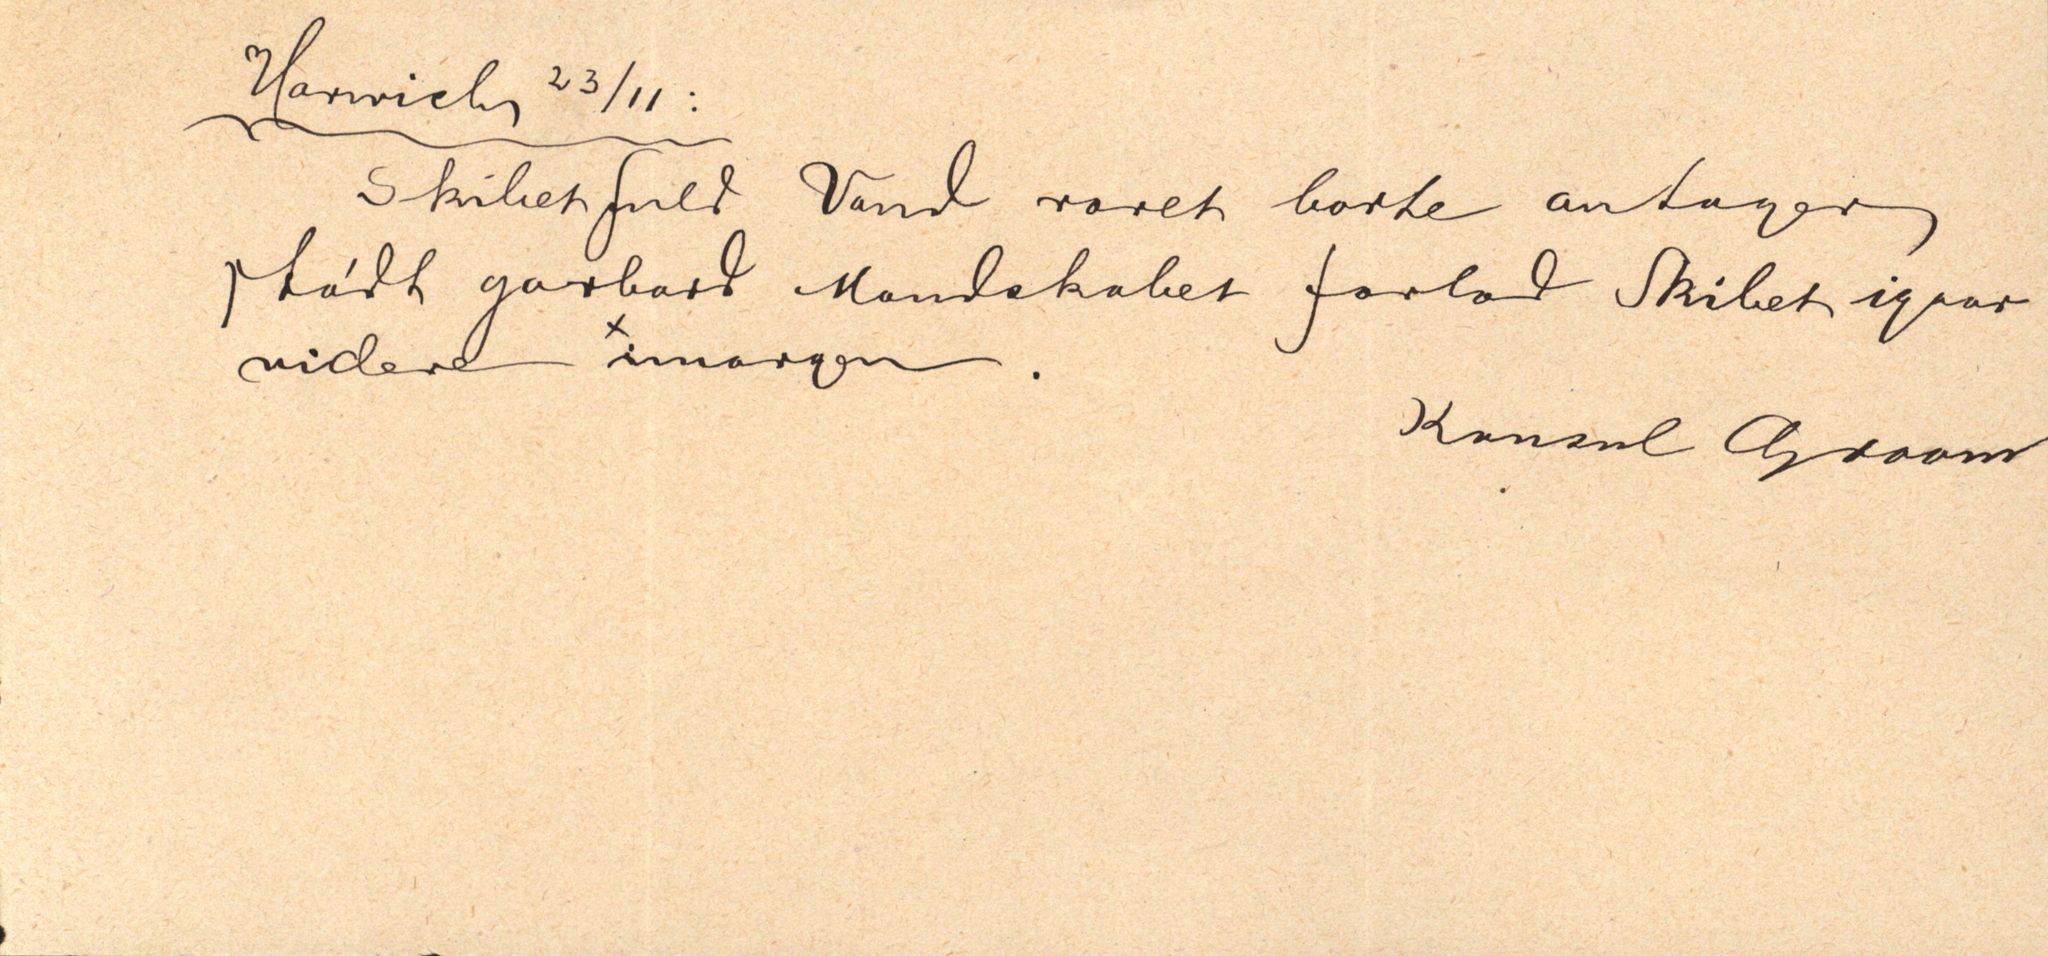 Harwich 23/11:
Skibet fuld Vand roret borte antager
stödt garbord Mandskabet forlod Skibet igaar
videre imorgen.
Konsul Groom